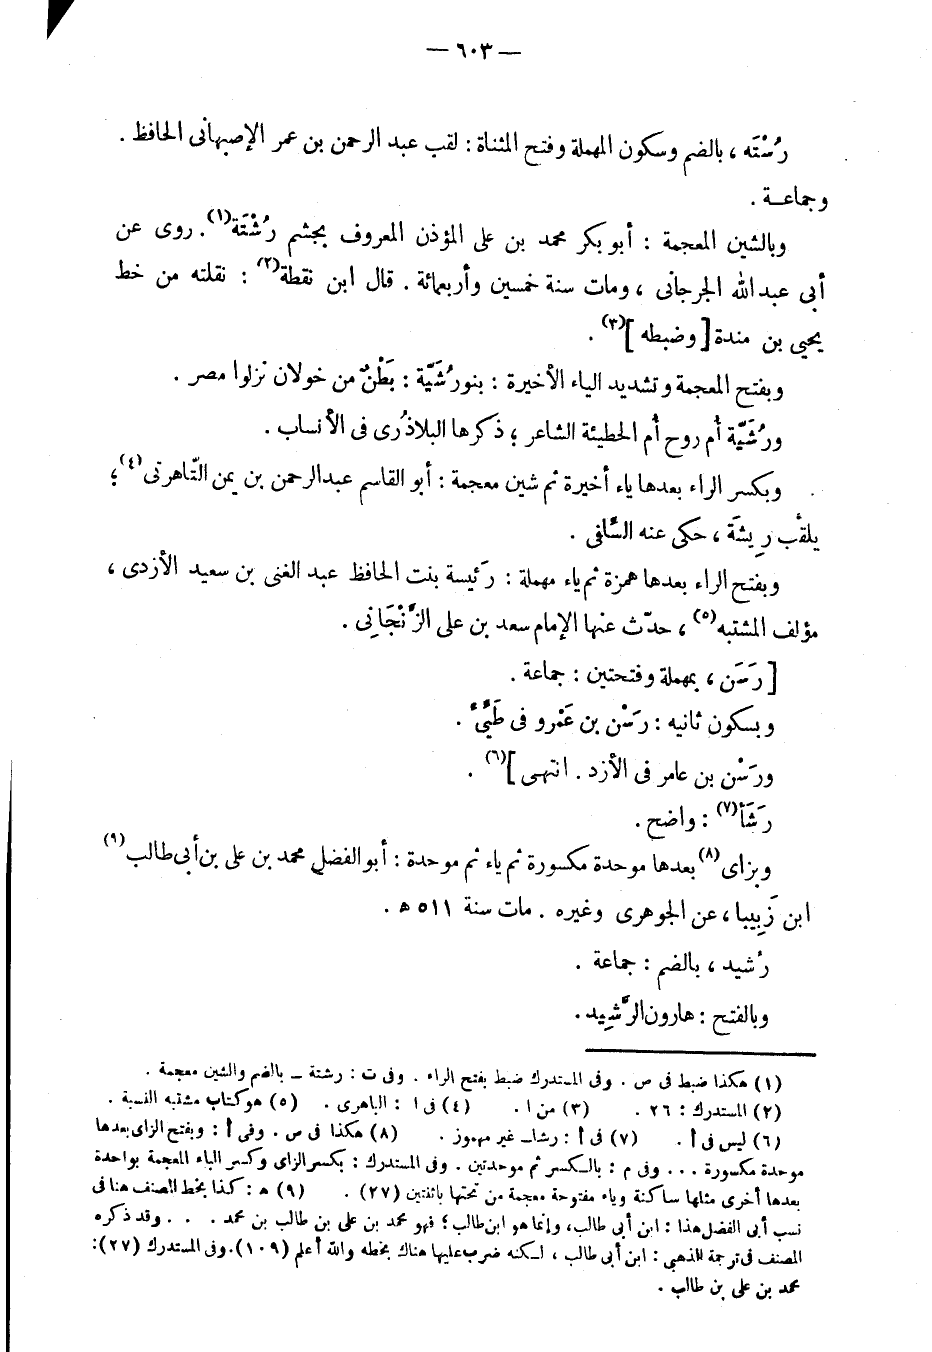 — ٦٠٣ —
رُسْتَه ، بالضم وسكون المهملة وفتح المثناة : لقب عبد الرحمن بن عمر الإصبهانى الحافظ .
وجماعــة .
وبالشين المعجمة : أبو بكر محمد بن على المؤذن المعروف بجشم رُشْتَة(١) . روى عن
أبى عبد الله الجرجانى ، ومات سنة خمسين وأربعمائة . قال ابن نقطة(٢) : نقلته من خط
يحيى بن مندة [ وضبطه ](٣) .
وبفتح المعجمة وتشديد الياء الأخيرة : بنو رُشَيَّة : بَطْنٌ من خولان نزلوا مصر .
ورُشَيَّة أم روح أم الحطيئة الشاعر ؛ ذكرها البلاذُرى فى الأنساب .
وبكسر الراء بعدها ياء أخيرة ثم شين معجمة : أبو القاسم عبد الرحمن بن يمن التّاهرتى(٤) ؛
يلقب رِيشَة ، حكى عنه السِّلَفى .
وبفتح الراء بعدها همزة ثم ياء مهملة : رَئيسة بنت الحافظ عبد الغنى بن سعيد الأزدى ،
مؤلف المشتبه(٥) ، حدّث عنها الإمام سعد بن على الزَّنْجَانِى .
[ رَسَن ، بمهملة وفتحتين : جماعة .
وبسكون ثانيه : رَسْن بن عَمْرو فى طَيِّئ .
ورَسْن بن عامر فى الأزد . انتهى ](٦) .
رَشَأ(٧) : واضح .
وبزاى(٨) بعدها موحدة مكسورة ثم ياء ثم موحدة : أبو الفضل محمد بن على بن أبى طالب(٩)
ابن زَبِيبا ، عن الجوهرى وغيره . مات سنة ٥١١ هـ .
رُشيد ، بالضم : جماعة .
وبالفتح : هارون الرَّشِيد .
(١) هكذا ضبط فى ص . وفى المستدرك ضبط بفتح الراء . وفى ت : رشتة – بالضم والشين معجمة .
(٢) المستدرك : ٢٦ . (٣) من ا . (٤) فى ا : الباهرى . (٥) هو كتاب مشتبه النسبة .
(٦) ليس فى أ . (٧) فى أ : رشا– غير مهموز . (٨) هكذا فى ص . وفى أ : وبفتح الزاى بعدها
موحدة مكسورة . . . وفى م : بالكسر ثم موحدتين . وفى المستدرك : بكسر الزاى وكسر الباء المعجمة بواحدة
بعدها أخرى مثلها ساكنة وياء مفتوحة معجمة من تحتها باثنتين (٢٧) . (٩) هـ : كذا بخط المصنف هنا فى
نسب أبى الفضل هذا : ابن أبى طالب ، وإنما هو ابن طالب ؛ فهو محمد بن على بن طالب بن محمد . . . وقد ذكره
المصنف فى ترجمة للذهبي : ابن أبى طالب ، لكنه ضرب عليها هناك بخطه والله أعلم (١٠٩) . وفى المستدرك (٢٧) :
محمد بن على بن طالب .